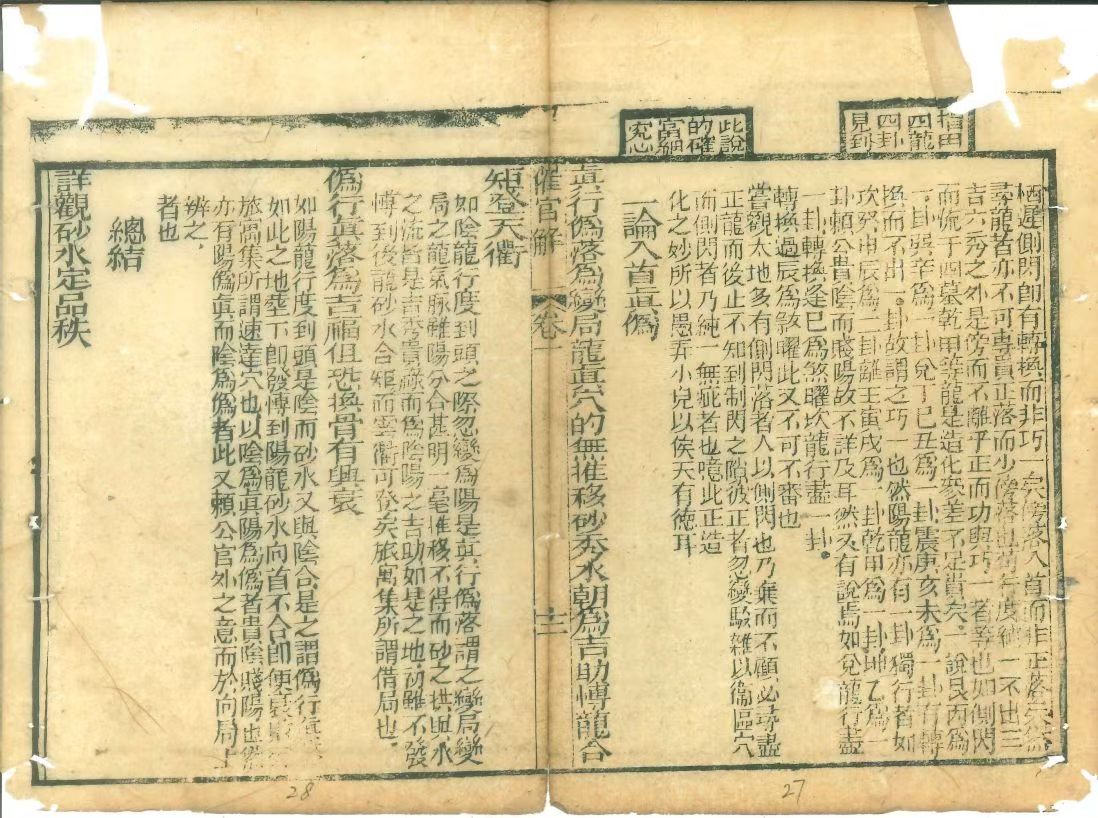 四龍
四卦
見到
此說
的確
當細
究心
栖遲側閃卽有轉換而非巧 矣傍落入首而非正落矣
尋龍者亦不可專貴正落而少傍落也苟行度純一不出三
吉六秀之外是傍而不離乎正而功與巧一者等也如側閃
而流于四墓乾甲等龍是造化參差不足貴矣一說艮丙爲
一卦巽辛爲一卦兌丁巳丑爲一卦震庚亥未爲一卦有轉
換而不出一卦故謂之巧一也然陽龍亦有一卦獨行者如
坎癸申辰爲一卦離壬寅戌爲一卦乾甲爲一卦坤乙爲一
卦賴公貴陰而賤陽故不詳及耳然又有說焉如兌龍行盡
一卦轉換逢巳爲煞曜坎龍行盡一卦
轉換過辰爲煞曜此又不可不審也
嘗觀大地多有側閃落者人以側閃也乃棄而不顧必尋盡
正龍而後止不知到制閃之隙彼正者忽變駁雜以衞區穴
而側閃者乃純一無疵者也噫此正造
化之妙所以愚弄小兒以俟天有德耳
一論入首眞僞
眞行僞落爲變局龍眞穴的無推移砂秀水朝爲吉助愽龍合
催官解 卷一 十三
矩登天衢
如陰龍行度到頭之際忽變爲陽是眞行僞落謂之變局變
局之龍氣脉雖陽分合甚明一毫推移不得而砂之拱與水
之流皆是吉秀貴祿而爲陰陽之吉助如是之地初雖不發
愽到後龍砂水合矩而雲衢可登矣旅寓集所謂借局也
僞行眞落爲吉福但恐換骨有興衰
如陽龍行度到頭是陰而砂水又與陰合是之謂僞行眞
如此之地塟下卽發愽到陽龍砂水向首不合卽便衰
旅寓集所謂速達穴也以陰爲眞陽爲僞者貴陰賤陽也然
亦有陽爲眞而陰爲僞者此又賴公官外之意而於向局上
辨之
者也
總結
詳觀砂水定品秩
27
28